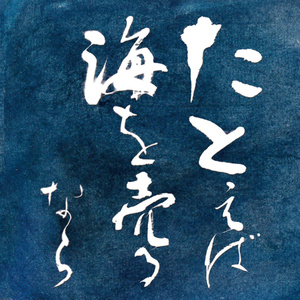 たとえば
海を売る
なら